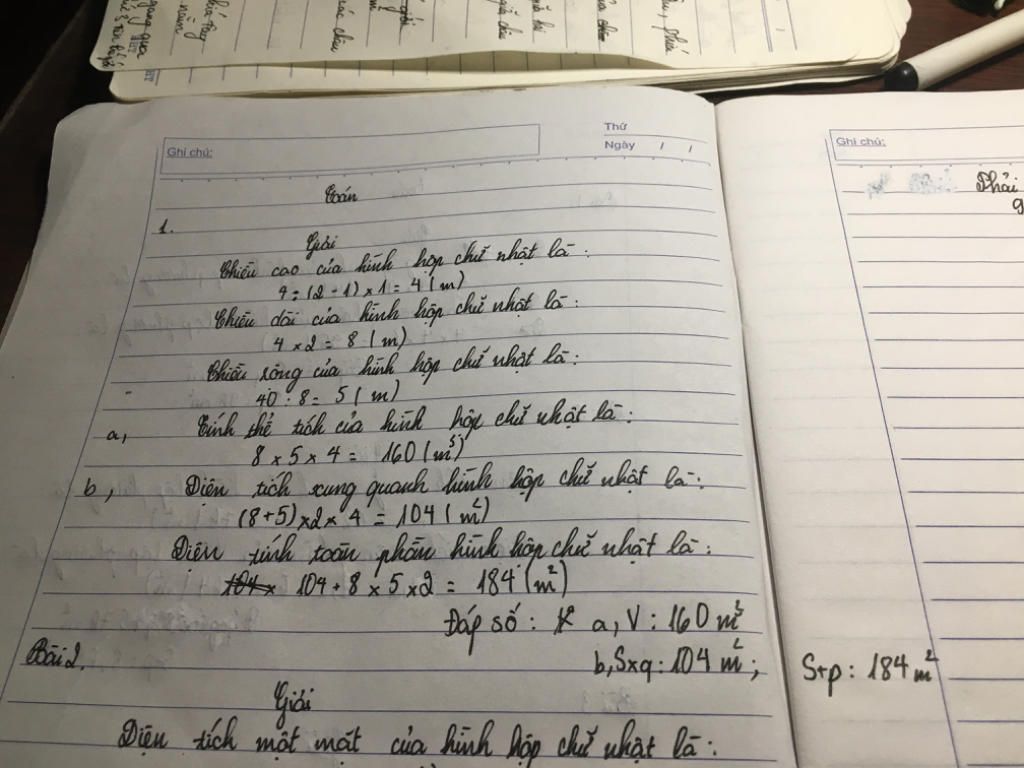 Ghi chú:
Thứ
Ngày / /
Toán
1.
Giải
Chiều cao của hình hộp chữ nhật là :
4 : (2 - 1) x 1 = 4 (m)
Chiều dài của hình hộp chữ nhật là :
4 x 2 = 8 (m)
Chiều rộng của hình hộp chữ nhật là :
40 : 8 = 5 (m)
a, Tính thể tích của hình hộp chữ nhật là :
8 x 5 x 4 = 160 (m³)
b, Diện tích xung quanh hình hộp chữ nhật là :
(8+5) x 2 x 4 = 104 (m²)
Diện tính toàn phần hình hộp chữ nhật là :
104 + 8 x 5 x 2 = 184 (m²)
Đáp số : a, V : 160 m³
b, Sxq : 104 m² ; Stp : 184 m²
Bài 2.
Giải
Diện tích một mặt của hình hộp chữ nhật là :
Ghi chú:
Phải